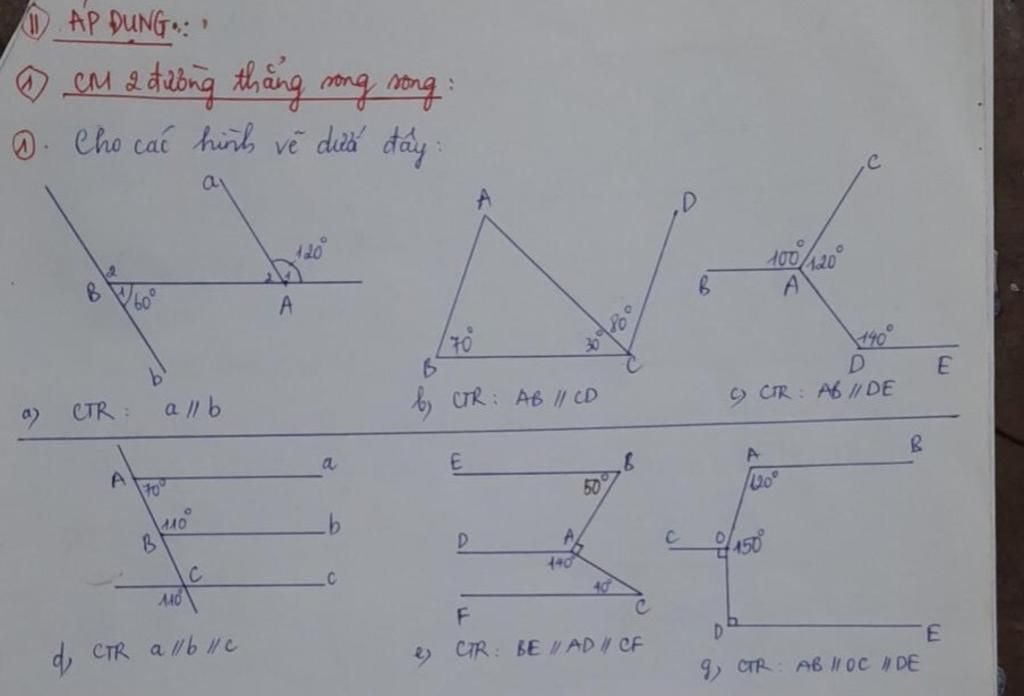 II ÁP DỤNG:
1 CM 2 đường thẳng song song:
1. Cho các hình vẽ dưới đây:
a
120°
2
B 1 60°
2 1
A
b
A
D
70°
80°
30°
B
C
C
100° 120°
B A
140°
D E
a) CTR: a // b
b) CTR: AB // CD
c) CTR: AB // DE
A 70° a
110°
B b
C c
110°
E B
50°
D A
140°
40°
F C
A B
120°
C O 150°
D E
d) CTR a // b // c
e) CTR: BE // AD // CF
g) CTR: AB // OC // DE